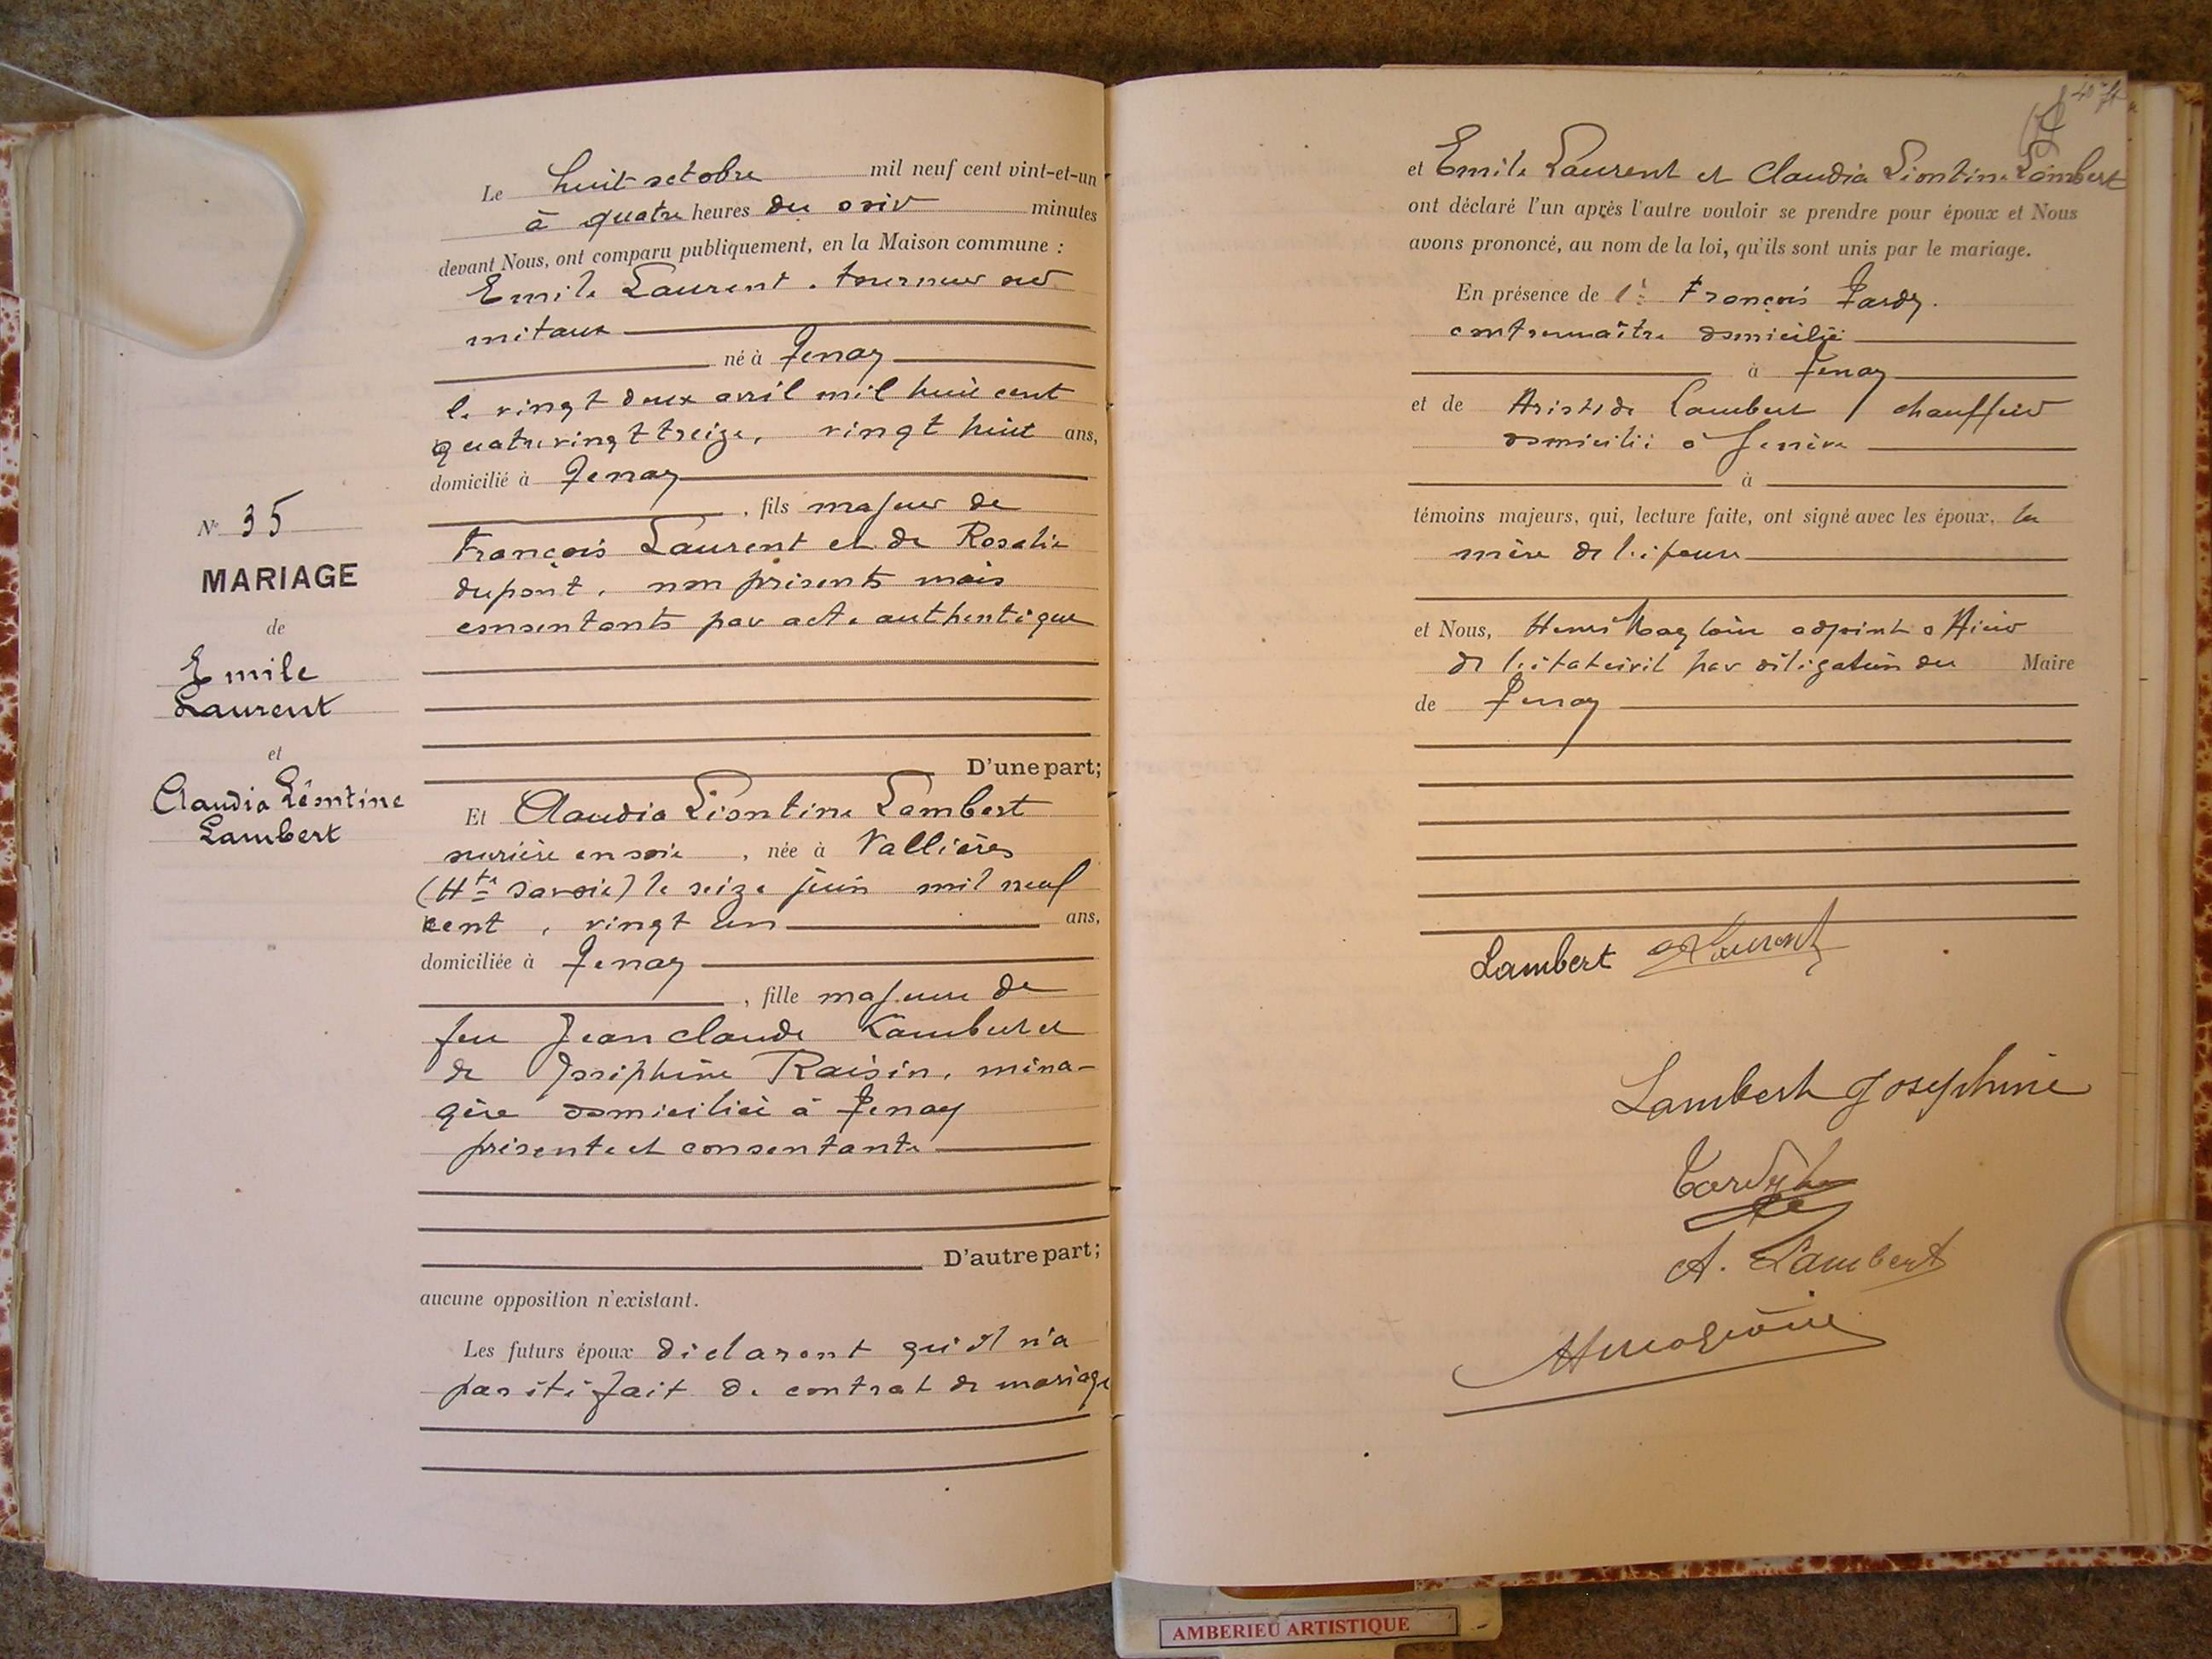 Le huit octobre mil neuf cent vint-et-un
à quatre heures du soir minutes
devant Nous, ont comparu publiquement, en la Maison commune :
Emile Laurent, tourneur sur
métaux
né à Tenay
le vingt deux avril mil huit cent
quatre vingt treize, vingt huit ans,
domicilié à Tenay
, fils majeur de
François Laurent et de Rosalie
dupont, non présents mais
consentants par acte authentique
D'une part;
N° 35
MARIAGE
de
Emile
Laurent
et
Claudia Léontine
Lambert
Et Claudia Léontine Lambert
ourière en soie, née à Vallières
(Hte Savoie) le seize juin mil neuf
cent, vingt un ans,
domiciliée à Tenay
, fille majeure de
feu Jean claude Lambert et
de Joséphine Raisin, ména-
gère domiciliée à Tenay
présente et consentante
D'autre part;
aucune opposition n'existant.
Les futurs époux déclarent qu'il n'a
pas été fait de contrat de mariage
et Emile Laurent et Claudia Léontine Lambert
ont déclaré l'un après l'autre vouloir se prendre pour époux et Nous
avons prononcé, au nom de la loi, qu'ils sont unis par le mariage.
En présence de 1° François Tardy.
contremaître domicilié
à Tenay
et de Aristide Lambert, chauffeur
domicilié à Genève
à
témoins majeurs, qui, lecture faite, ont signé avec les époux, la
mère de l'épouse
et Nous, Henri Magloire adjoint officier
de l'état civil par délégation du Maire
de Tenay
Lambert Laurent
Lambert Josephine
Tardy
A. Lambert
HMagloire
AMBERIEU ARTISTIQUE